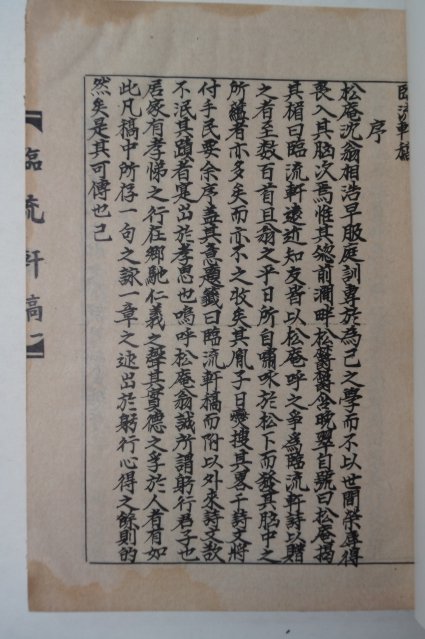 臨流軒稿
序
松庵沈翁相浩早服庭訓專於為己之學而不以世間榮辱得
喪入其胸次焉惟其窓前澗畔松欝欝含晩翠自號曰松庵揭
其楣曰臨流軒遠近知友皆以松庵呼之爭為臨流軒詩以贈
之者至数百首且翁之平日所自嘯咏於松下而發其胸中之
所蘊者亦多矣而亦不之收矣其胤子日 搜其畧干詩文將
付手民要余序盡其意題籤曰臨流軒稿而附以外來詩文数
不泯其蹟者寔出於孝思也嗚呼松庵翁誠所謂躬行君子也
居家有孝悌之行在鄉馳仁義之聲其實德之孚於人者有如
此凡稿中所存一句之詠一章之述出於躬行心得之餘則的
然矣是其可傳也已
臨流軒稿